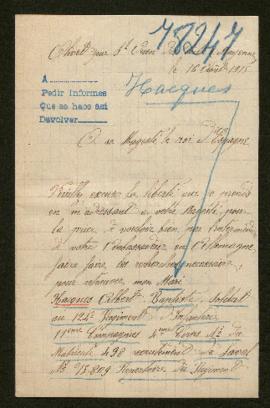 78247
le 16 Août 1915
Hacques
A
Pedir informes
Que se hace así
Devolver
A sa Majesté le roi d'Espagne
Veuillez excuser la liberté que je prends
en m'adressant à votre Majesté, pour
la prier, à vouloir bien, par l'intermédiaire
de votre l'ambassadeur en Allemagne,
faire faire, les recherches nécessaires,
pour retrouver, mon Mari
Hacques Albert Baptiste, soldat
au 124e Régiment d'Infanterie
11eme Compagnie 4eme No du
Matricule 498 recrutement de Laval
No 13809 du Régiment